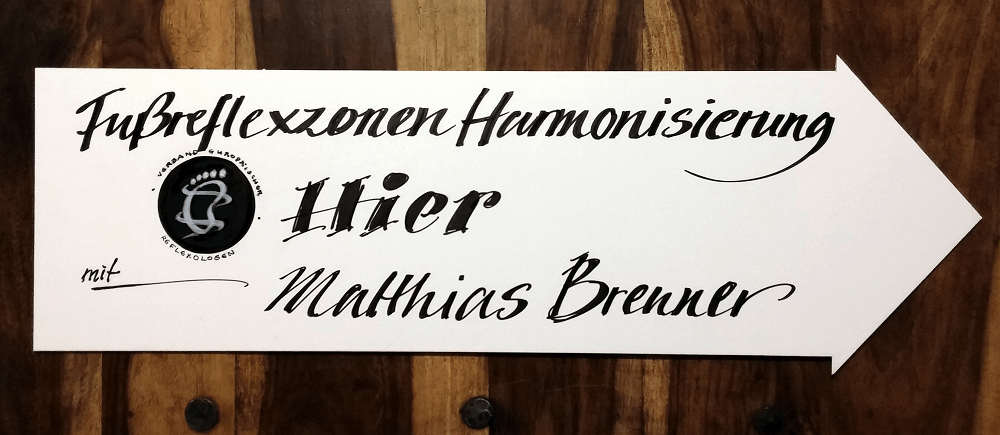 Fußreflexzonen Harmonisierung
VERBAND EUROPÄISCHER
REFLEXOLOGEN
Hier
mit
Matthias Brenner